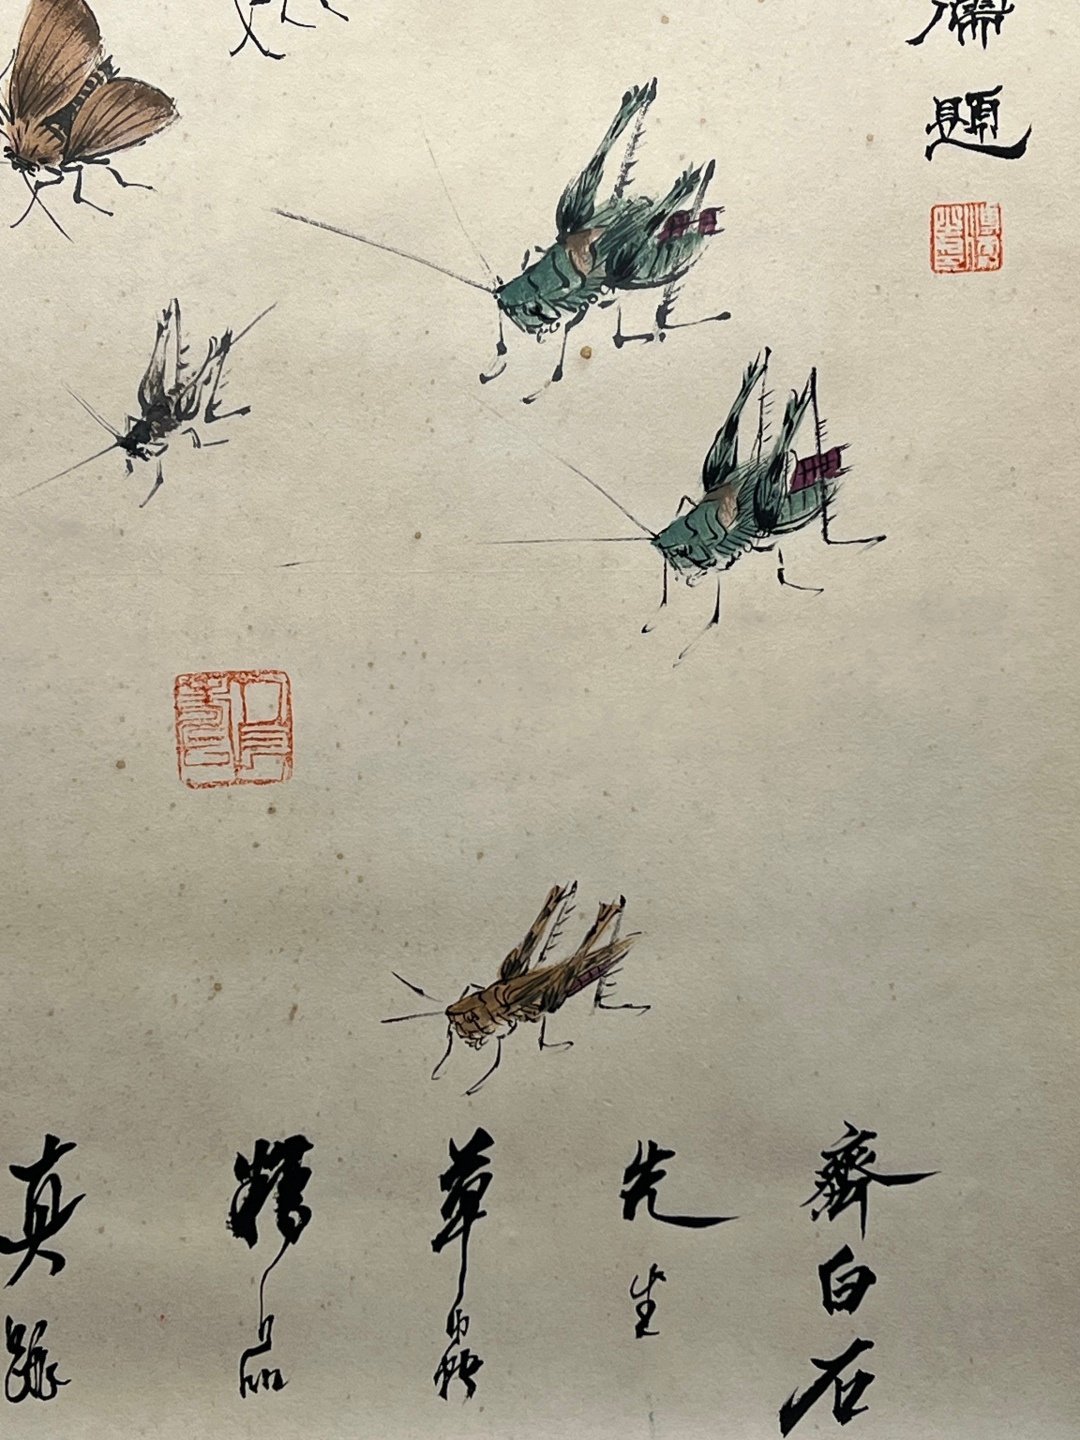 題
齊白石
先生
草蟲
精品
真跡